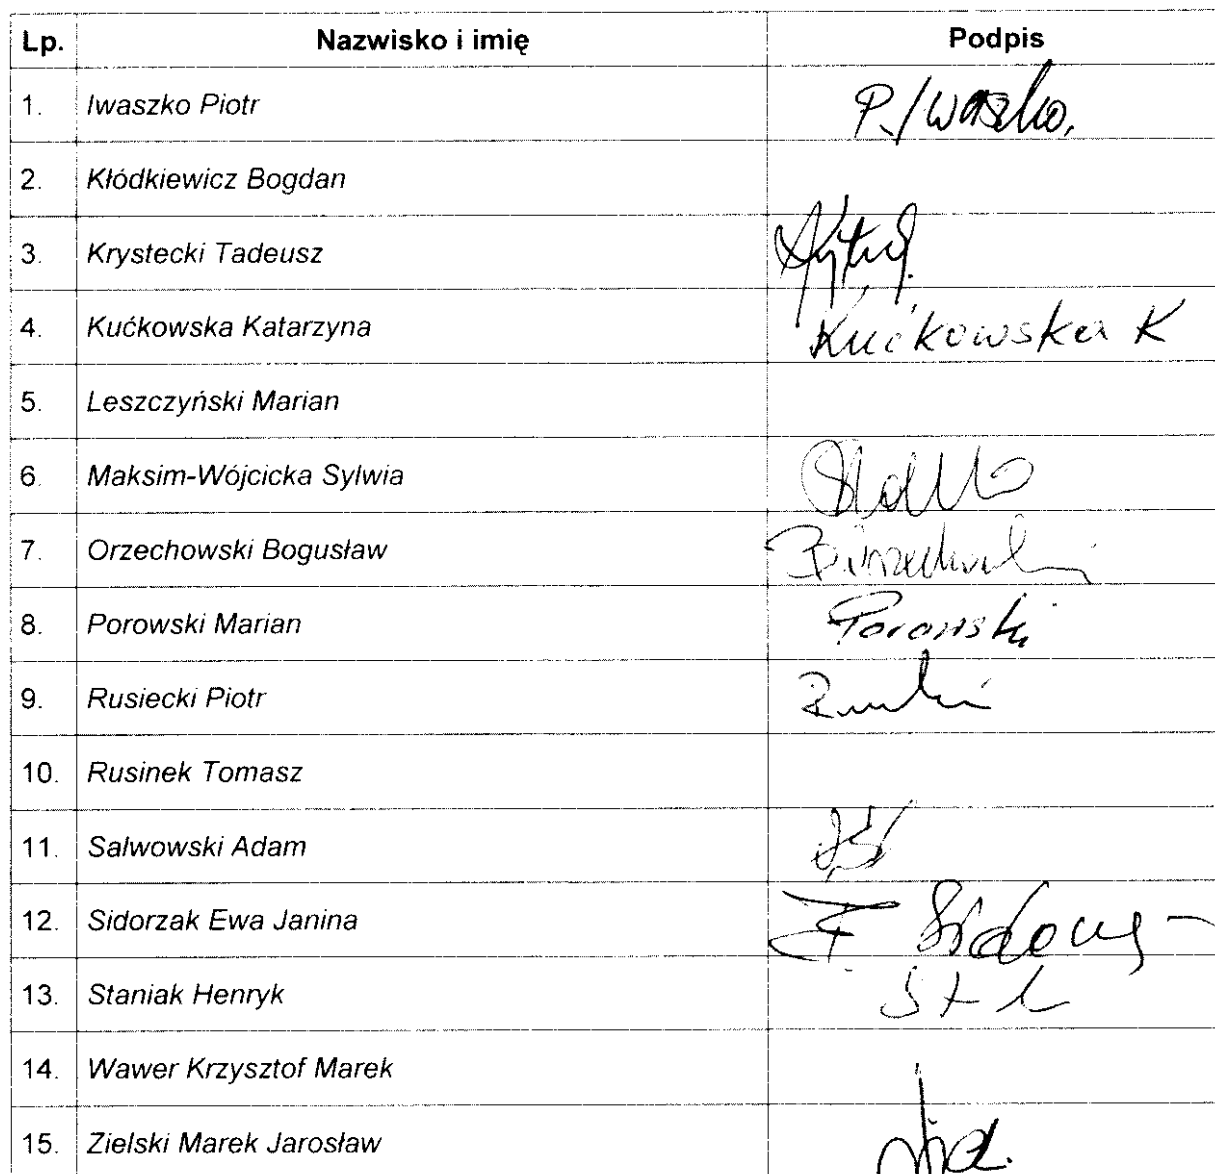 Lp. Nazwisko i imię Podpis
1. Iwaszko Piotr P. Iwaszko.
2. Kłódkiewicz Bogdan
3. Krystecki Tadeusz
4. Kućkowska Katarzyna Kućkowska K
5. Leszczyński Marian
6. Maksim-Wójcicka Sylwia
7. Orzechowski Bogusław
8. Porowski Marian Porowski
9. Rusiecki Piotr
10. Rusinek Tomasz
11. Salwowski Adam
12. Sidorzak Ewa Janina
13. Staniak Henryk
14. Wawer Krzysztof Marek
15. Zielski Marek Jarosław